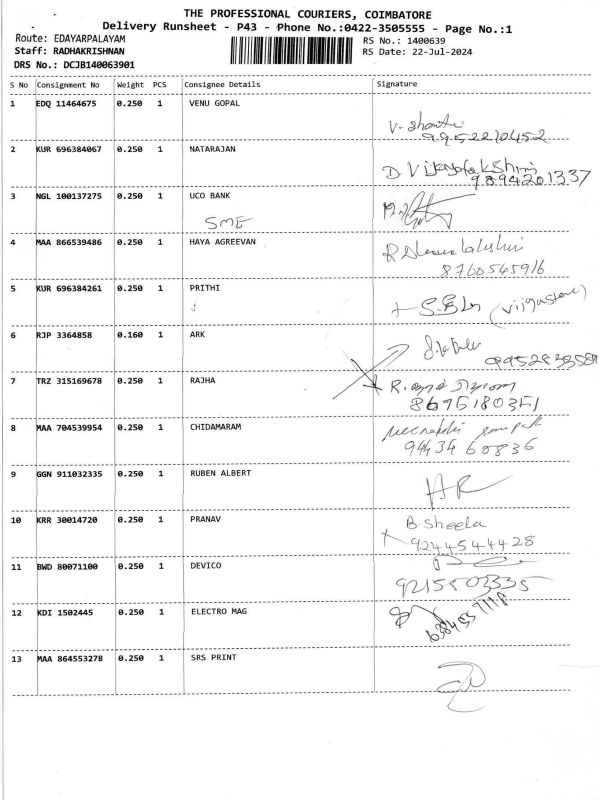 THE PROFESSIONAL COURIERS, COIMBATORE
Delivery Runsheet - P43 - Phone No.:0422-3505555 - Page No.:1
Route: EDAYARPALAYAM
Staff: RADHAKRISHNAN
DRS No.: DCJB140063901
RS No.: 1400639
RS Date: 22-Jul-2024
S No Consignment No Weight PCS Consignee Details Signature
1 EDQ 11464675 0.250 1 VENU GOPAL
V. Shanthi
9952210452
2 KUR 696384067 0.250 1 NATARAJAN
D Vijayalakshmi
9894201337
3 NGL 100137275 0.250 1 UCO BANK
SME
4 MAA 866539486 0.250 1 HAYA AGREEVAN
8760545916
5 KUR 696384261 0.250 1 PRITHI
6 RJP 3364858 0.160 1 ARK
7 TRZ 315169678 0.250 1 RAJHA
8695180351
8 MAA 704539954 0.250 1 CHIDAMARAM
9434 60836
9 GGN 911032335 0.250 1 RUBEN ALBERT
10 KRR 30014720 0.250 1 PRANAV
B. Sheela
9244544428
11 BWD 80071100 0.250 1 DEVICO
9215503335
12 KDI 1502445 0.250 1 ELECTRO MAG
13 MAA 864553278 0.250 1 SRS PRINT